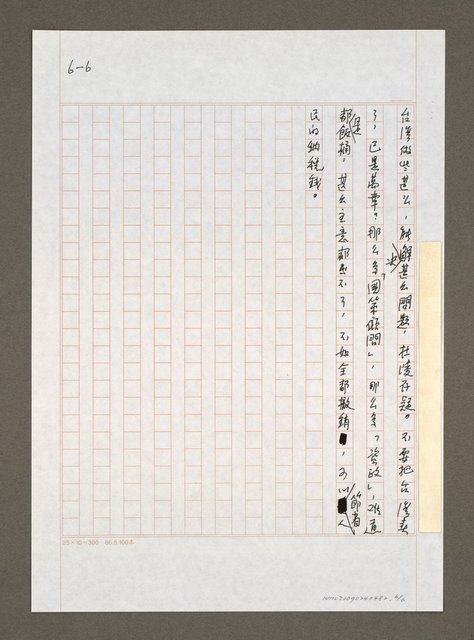 6-6
台灣做些甚么，能解決甚么問題，杜凌存疑。不要把台灣弄
了，已是萬幸？那么多「國策顧問」，那么多「資政」，难道
都是飯桶，甚么主意都出不了，不如全部撤銷，可以節省人
民的納税錢。
25×10=300 86.5.100本